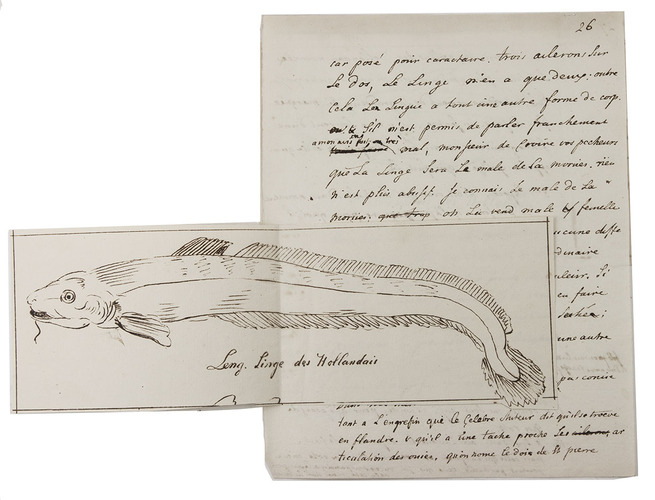 26
car posé pour caractaire. trois ailerons sur
Le dos, Le Linge n'en a que deux. outre
Cela Les Lingue a tout une autre forme de corp.
s'il m'est permis de parler franchement
a mon avis fait très
mal, monsieur de Covire vos pecheurs
que La Linge sera Le male de La morues. rien
n'est plus abusif. Je connais Le male de La
morues, que trop on La vend male et femelle
ucune diffe
dinaire
uleur, Si
en faire
Secher;
une autre
pas connue
tant a L'engrefin que le Celebre Auteur dit qu'il se troeve
en flandre. & qu'il a une tache proche Les ailerons, ar
ticulation des ouies, qu'on nome le doix de St pierre
Leng. Linge des Hollandais